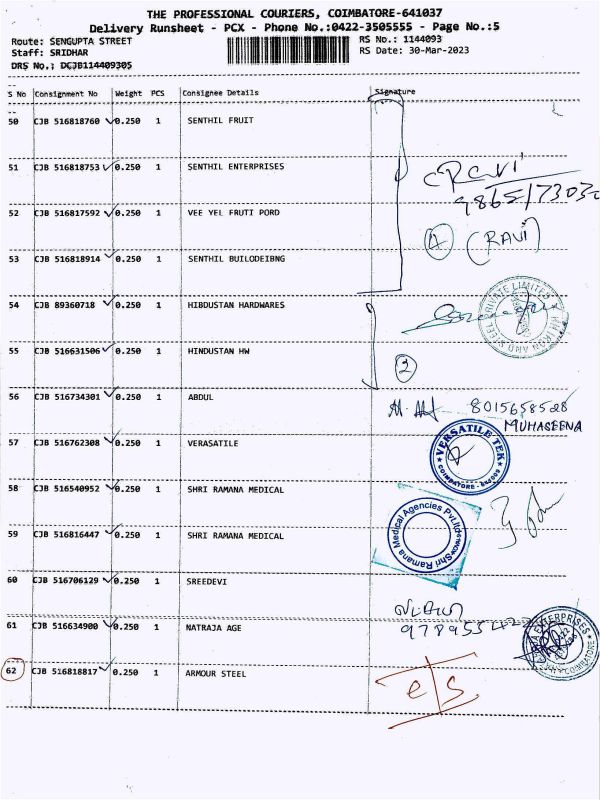 THE PROFESSIONAL COURIERS, COIMBATORE-641037
Delivery Runsheet - PCX - Phone No.:0422-3505555 - Page No.:5
Route: SENGUPTA STREET RS No.: 1144093
Staff: SRIDHAR RS Date: 30-Mar-2023
DRS No.: DCJB114409305
S No Consignment No Weight PCS Consignee Details Signature
50 CJB 516818760 0.250 1 SENTHIL FRUIT
51 CJB 516818753 0.250 1 SENTHIL ENTERPRISES
Ravi
52 CJB 516817592 0.250 1 VEE YEL FRUTI PORD
4 (RAVI)
53 CJB 516818914 0.250 1 SENTHIL BUILODEIBNG
54 CJB 89360718 0.250 1 HIBDUSTAN HARDWARES
PRIVATE LIMITED
IRON AND STEEL
55 CJB 516631506 0.250 1 HINDUSTAN HW
2
56 CJB 516734301 0.250 1 ABDUL
8015658528
MUHASEENA
57 CJB 516762308 0.250 1 VERASATILE
VERSATILE TEK
COIMBATORE
58 CJB 516540952 0.250 1 SHRI RAMANA MEDICAL
59 CJB 516816447 0.250 1 SHRI RAMANA MEDICAL
Shri Ramana Medical Agencies Pvt Ltd
60 CJB 516706129 0.250 1 SREEDEVI
61 CJB 516634900 0.250 1 NATRAJA AGE
ENTERPRISES
COIMBATORE
62 CJB 516818817 0.250 1 ARMOUR STEEL